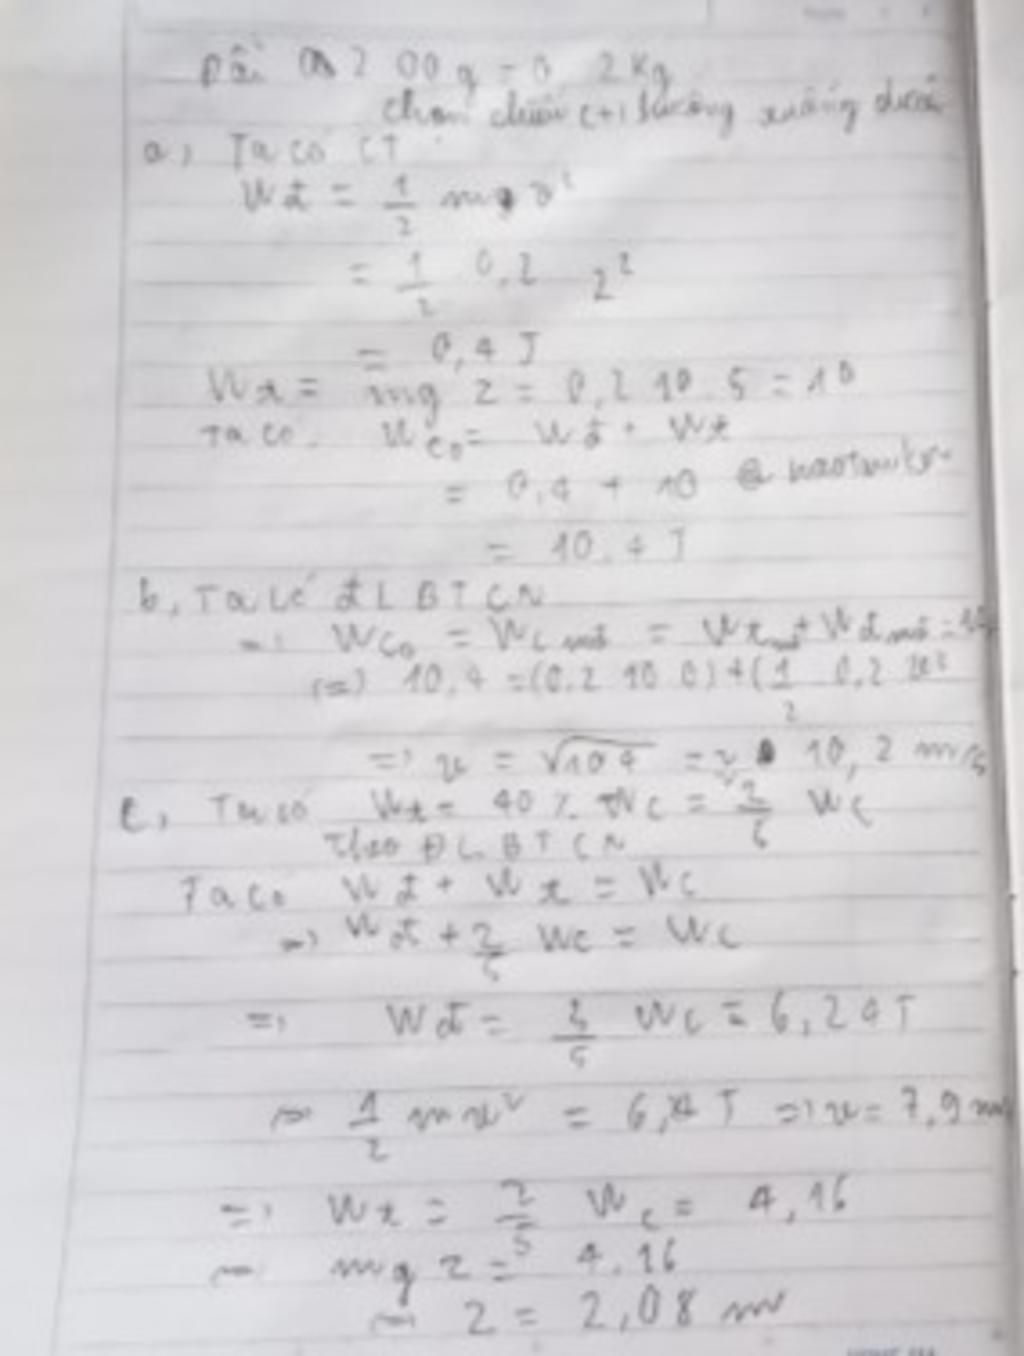 Đổi 200g = 0,2 Kg
chọn chiều (+) hướng xuống dưới
a, Ta có CT:
Wđ = 1/2 m v²
= 1/2 0,2 2²
= 0,4 J
Wt = mg z = 0,2 10 . 5 = 10
Ta có: Wc₀ = Wđ + Wt
= 0,4 + 10
= 10,4 J
b, Ta có ĐLBTCN
=> Wc₀ = Wc mđ = Wt mđ + Wđ mđ
(=) 10,4 = (0,2 10 0) + (1/2 0,2 v²
=> v = √104 = 10,2 m/s
c, Ta có Wt = 40 % Wc = 2/5 Wc
Theo ĐLBTCN
Ta có Wđ + Wt = Wc
=> Wđ + 2/5 Wc = Wc
=> Wđ = 3/5 Wc = 6,24 J
=> 1/2 m v² = 6,24 J => v = 7,9 m
=> Wt = 2/5 Wc = 4,16
=> mg z = 4,16
=> z = 2,08 m